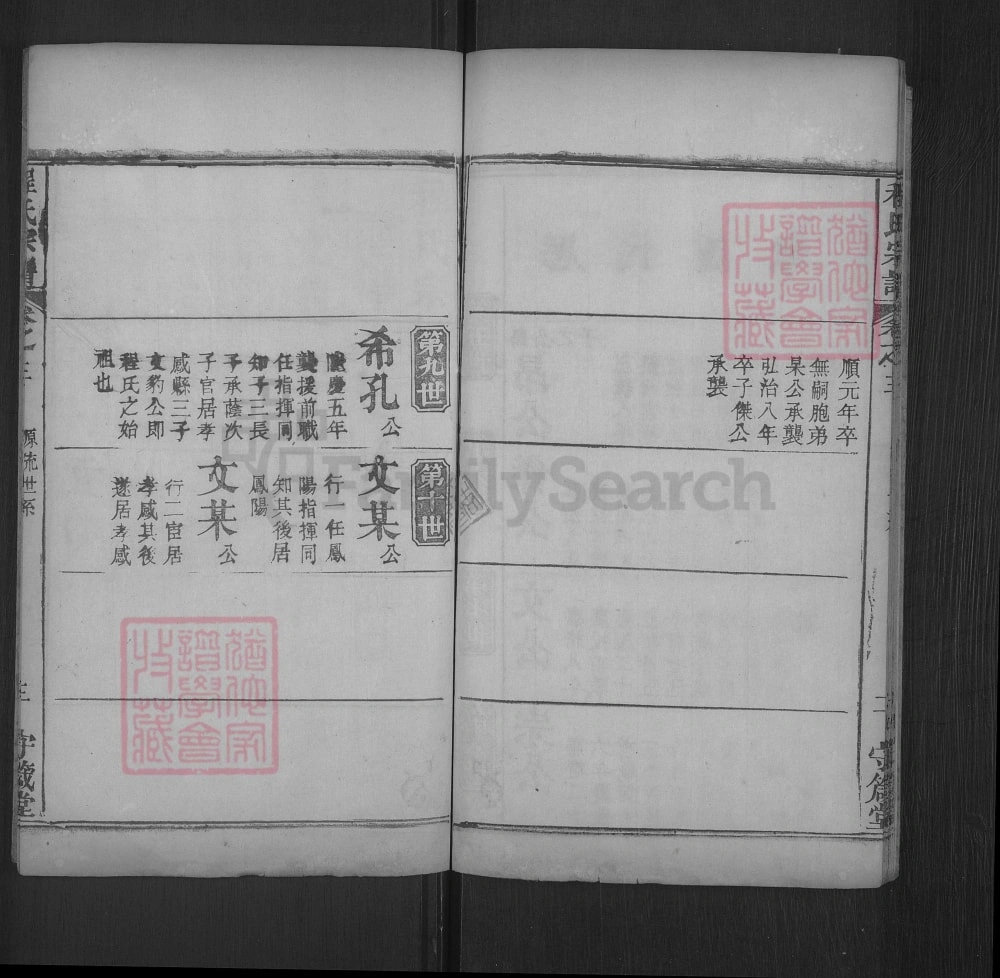 程氏宗譜
卷之三
順元年卒
無嗣胞弟
杲公承襲
弘治八年
卒子傑公
承襲
守箴堂
第九世
希孔公
隆慶五年
襲援前職
任指揮同
知子三長
子承蔭次
子官居孝
感縣三子
文豹公即
程氏之始
祖也
第十世
文某公
行一任鳳
陽指揮同
知其後居
鳳陽
文某公
行二宦居
孝感其後
遂居孝感
程氏宗譜
卷之三
源流世系
守箴堂
猶他家譜學會收藏
猶他家譜學會收藏
FamilySearch